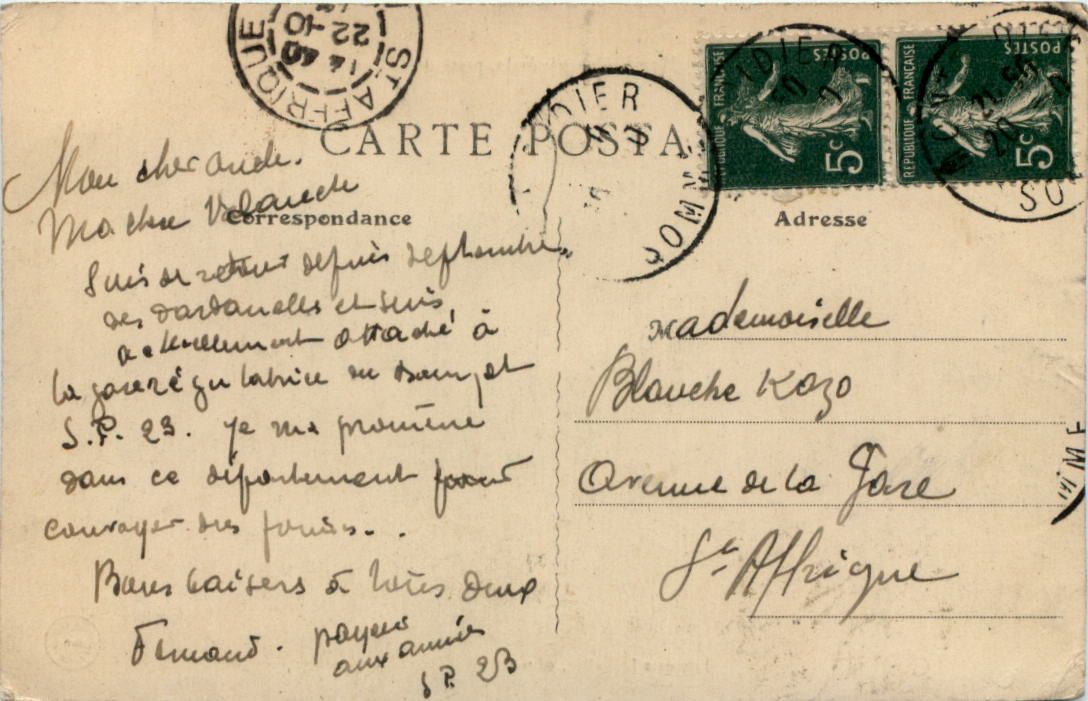 ST AFFRIQUE
22-10
CARTE POSTA
DIDIER
SOMME
REPUBLIQUE FRANÇAISE
POSTES
5c
REPUBLIQUE FRANÇAISE
POSTES
5c
Correspondance
Adresse
Mon cher
Ma chere Blanche
Suis de retour depuis septembre
des Dardanelles et suis
actuellement attaché à
la gare régulatrice du Bourget
S.P. 23. Je me promène
dans ce département pour
convoyer des fonds..
Bons baisers à vous deux
Fernand. payeur
aux armées
S P. 23
Mademoiselle
Blanche Kozo
Avenue de la Gare
St Affrique